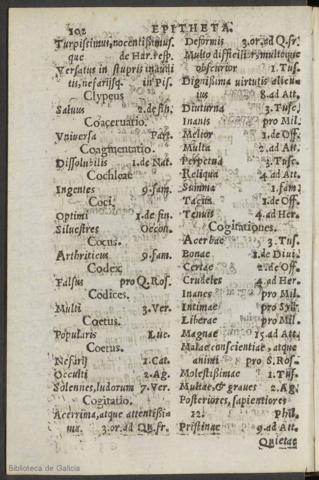 102 EPITHETA.
Turpissimus, nocentissimus.
que de Har. resp.
Versatus in stupris inaudi
tis, nefarijsq. in Pis.
Clypeus
Saluus 2. de fin.
Coaceruatio.
Vniuersa Part.
Coagmentatio.
Dissolubilis 1. de Nat.
Cochleae
Ingentes 9. fam.
Coci.
Optimi 1. de fin.
Siluestres Oecon.
Cocus.
Arthriticus 9. fam.
Codex
Falsus pro Q. Ros.
Codices.
Multi 3. Ver.
Coetus.
Popularis Luc.
Coetus.
Nefarij 1. Cat.
Occulti 2. Ag.
Solennes, ludorum 7. Ver.
Cogitatio.
Acerrima, atque attentissi
ma. 3. or. ad Qu. fr.
Deformis 3. or. ad Q. fr.
Multo difficilior, multoque
obscurior 1. Tus.
Dignissima virtutis alicu-
ius 8. ad Att.
Diuturna 3. Tusc.
Inanis pro Mil.
Melior 1. de Off.
Multa 2. ad Att.
Perpetua 3. Tusc.
Reliqua 4. ad Att.
Summa 1. fam.
Tacita 1. de Off.
Tenuis 4. ad Her.
Cogitationes.
Acerbae 3. Tus.
Bonae 1. de Diui.
Certae 2. de Off.
Crudeles 4. ad Her.
Inanes pro Mil.
Intimae pro Syll.
Liberae pro Mil.
Magnae 15. ad Att.
Malae conscientiae, atque
animi pro S. Ros.
Molestissimae 1. Tus.
Multae, & graues 2. Ag.
Posteriores, sapientiores
12. Phil.
Pristinae 9. ad Att.
Quietae
Biblioteca de Galicia